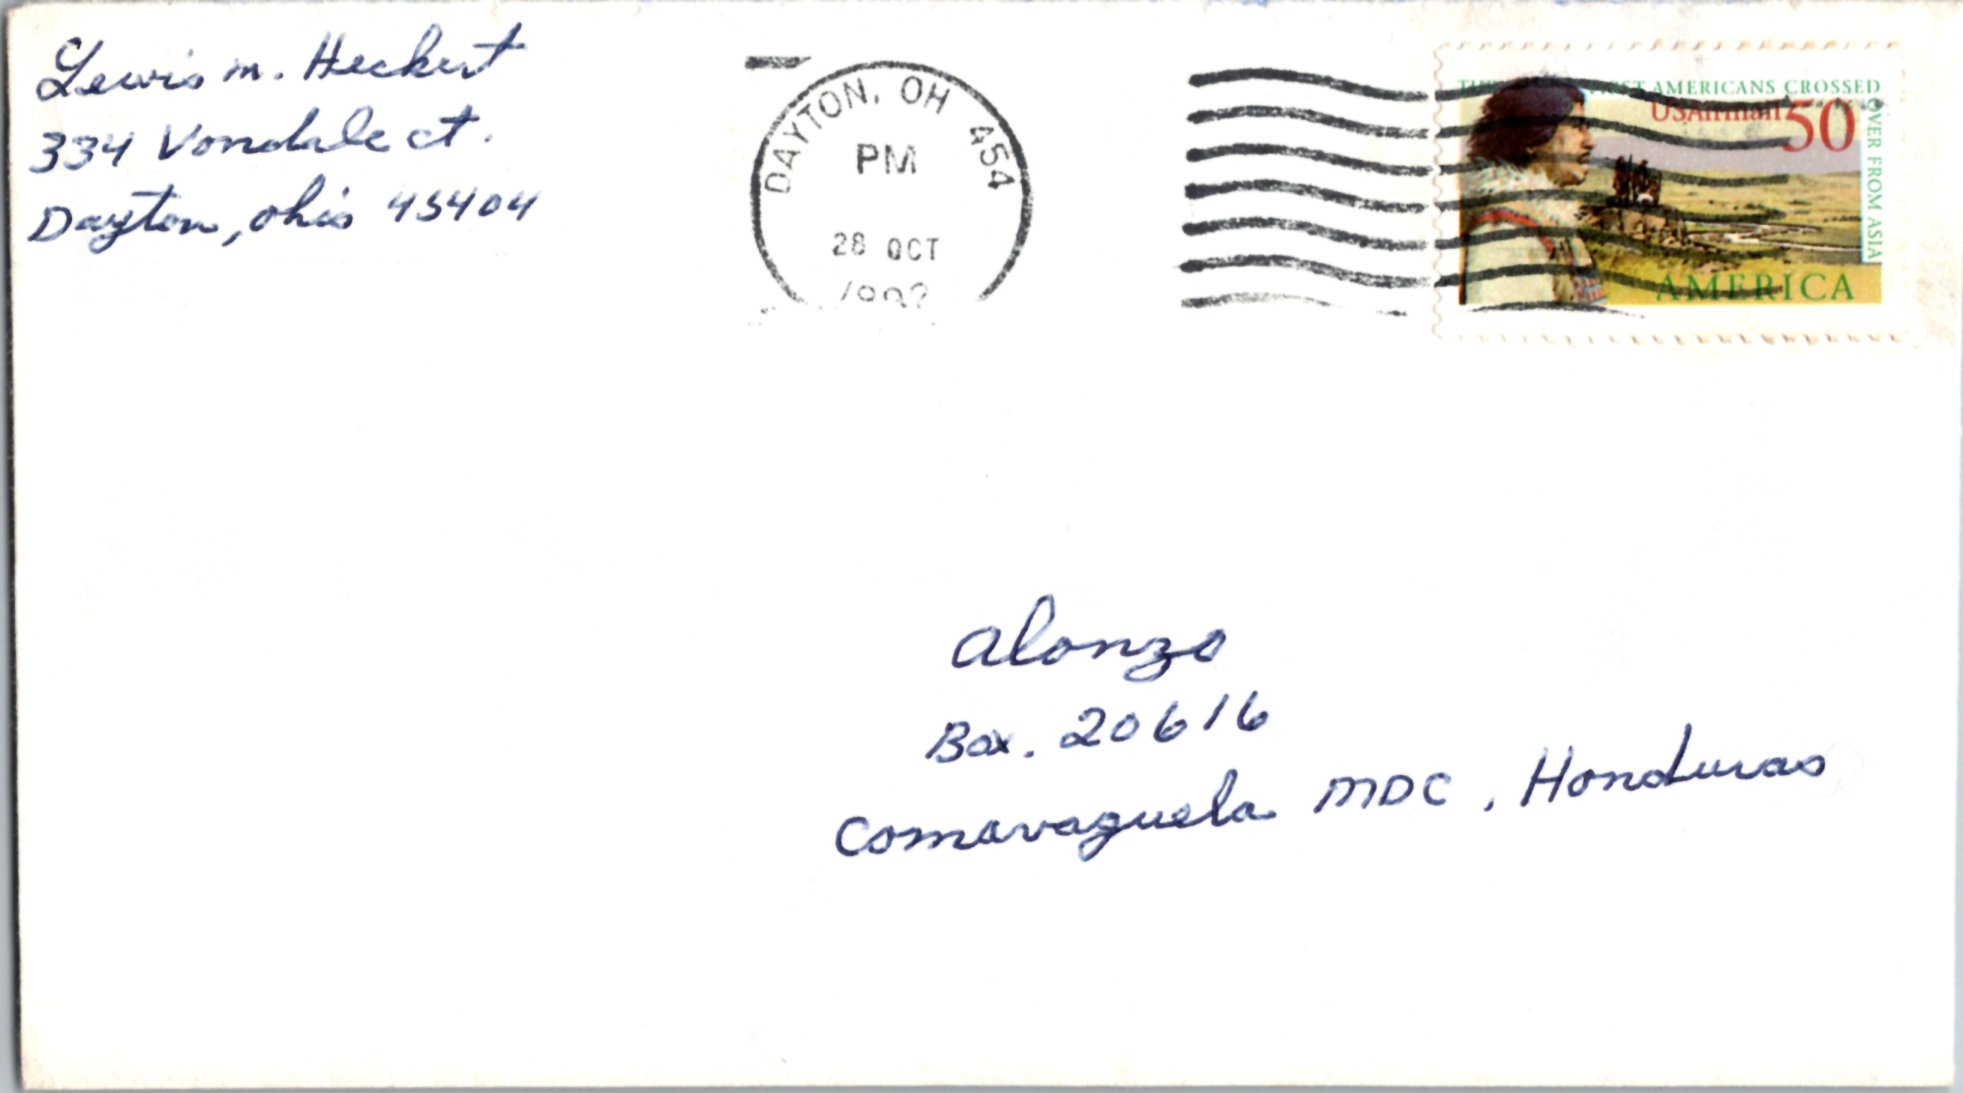 Lewis M. Heckert
334 Vondale ct.
Dayton, Ohio 45404
DAYTON, OH 454
PM
28 OCT
AMERICANS CROSSED
OVER FROM ASIA
USAirmail 50
AMERICA
Alonzo
Box. 20616
Comavaguela MDC, Honduras